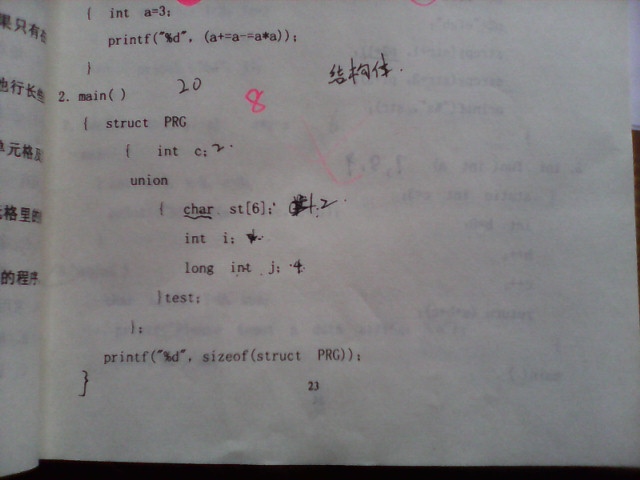 { int a=3;
printf("%d", (a+=a-=a*a));
}
2. main() 20 8 结构体.
{ struct PRG
{ int c; 2
union
{ char st[6];
int i;
long int j; 4
}test;
};
printf("%d", sizeof(struct PRG));
}
23
果只有
他行长些
单元格及
格里的
的程序